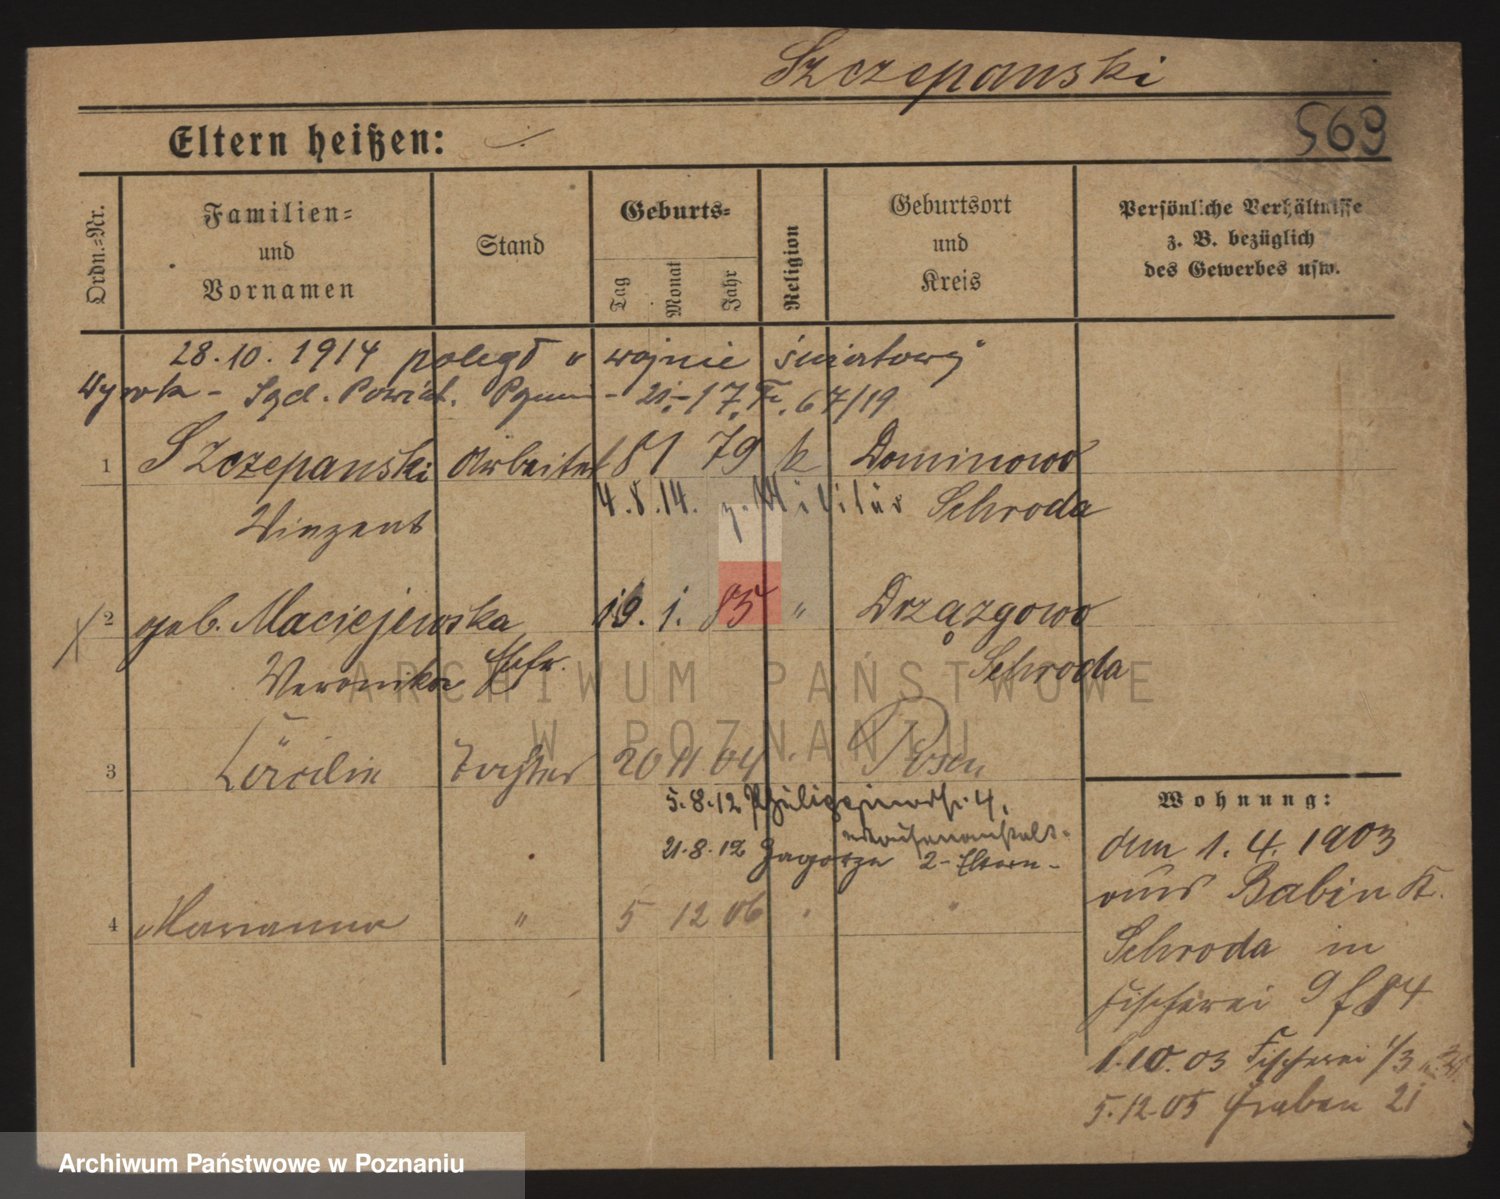 Szczepanski
569
Eltern heißen: ./.
Ordn.=Nr.
Familien=
und
Vornamen
Stand
Geburts=
Tag
Monat
Jahr
Religion
Geburtsort
und
Kreis
Persönliche Verhältnisse
z. B. bezüglich
des Gewerbes usw.
28.10.1914 poległ w wojnie światowej
Wyrok - Sąd. Powiat. 21.-17. 67/19
1 Szczepanski Arbeiter 79 k Dominowo
4.8.14. z. Militär Schroda
Vinzent
2 geb. Maciejewska 19. 1. 85 " Drzązgowo
Veronika Ehefr. Schroda
3 Cäcilie Tochter 20 11 04 Posen
5.8.12 4.
21.8.12 Zagorze 2 - Eltern -
4 Marianna " 5 12 06 " "
Wohnung:
den 1.4.1903
aus Babin K.
Schroda in
Fischerei 9 84
1.10.03 Fischerei 1/3
5.12.05 Graben 21
ARCHIWUM PAŃSTWOWE
W POZNANIU
Archiwum Państwowe w Poznaniu